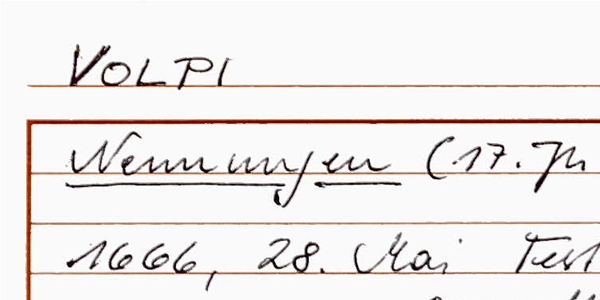 VOLPI
Nennungen (17. Jh
1666, 28. Mai Test